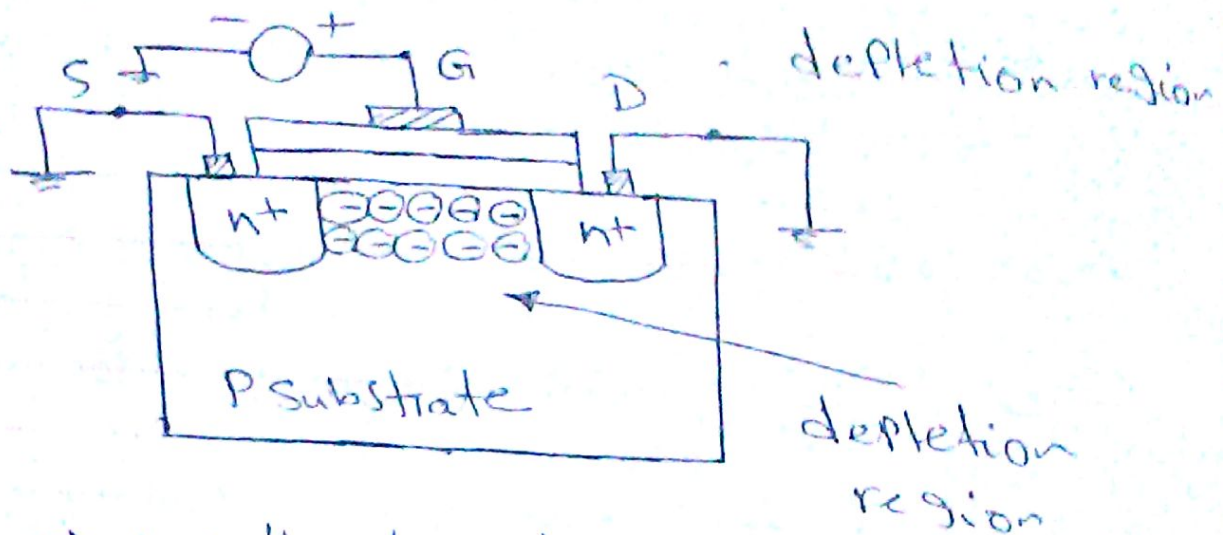 - +
S G D
depletion region
n+ n+
P Substrate
depletion
region